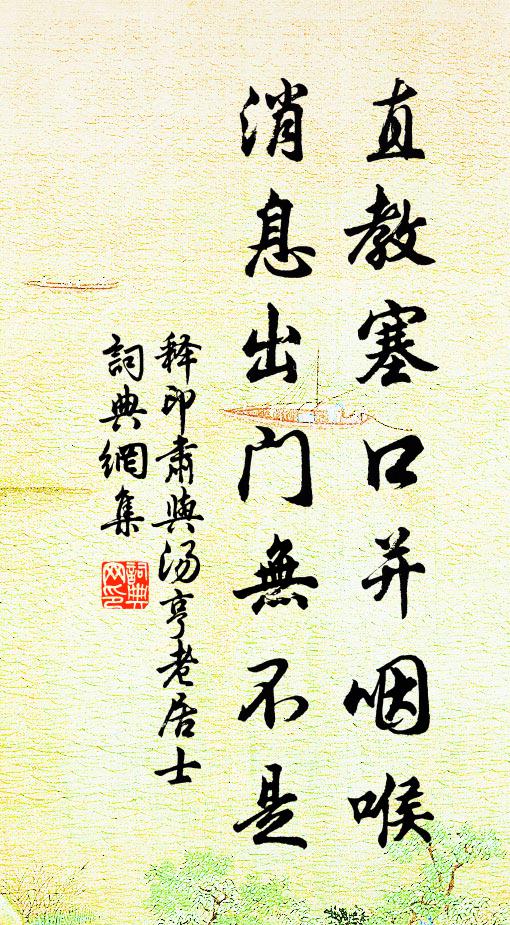 直教塞口并咽喉
消息出门無不是
释印肃與汤亨老居士
詞典網集
詞典網印